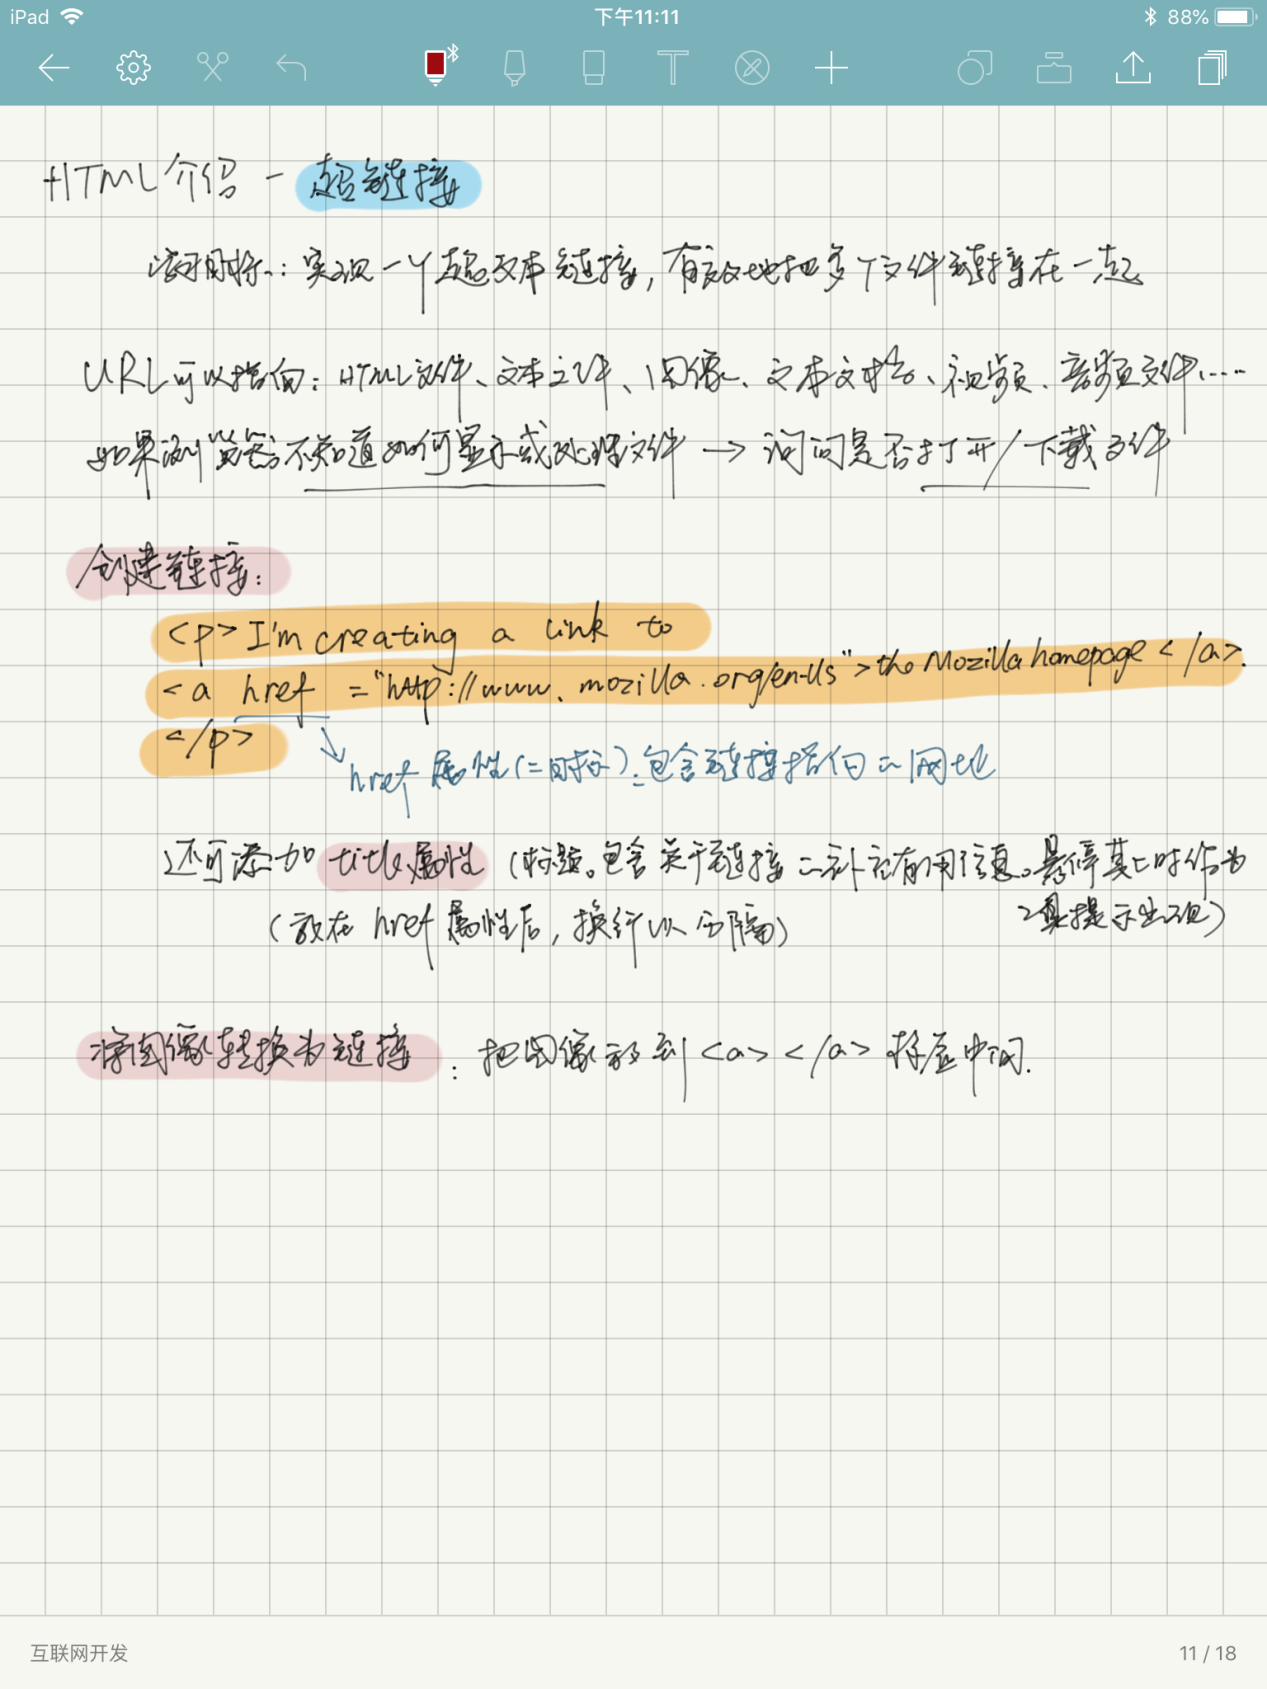 iPad 下午11:11 88%
HTML介绍 - 超链接
学习目标：实现一个超文本链接，有效地把多个文件链接在一起
URL可以指向：HTML文件、文本文件、图像、文本文档、视频、音频文件……
如果浏览器不知道如何显示或处理文件 → 询问是否打开/下载文件
创建链接：
<p>I'm creating a link to
<a href ="http://www.mozilla.org/en-Us">the Mozilla homepage</a>.
</p>
href 属性(=目标)：包含链接指向の网地
还可添加 title属性 (标题。包含关于链接の补充有用信息。悬停其上时作为
工具提示出现)
(放在 href属性后，换行以分隔)
将图像转换为链接：把图像放到<a></a>标签中间.
互联网开发 11 / 18